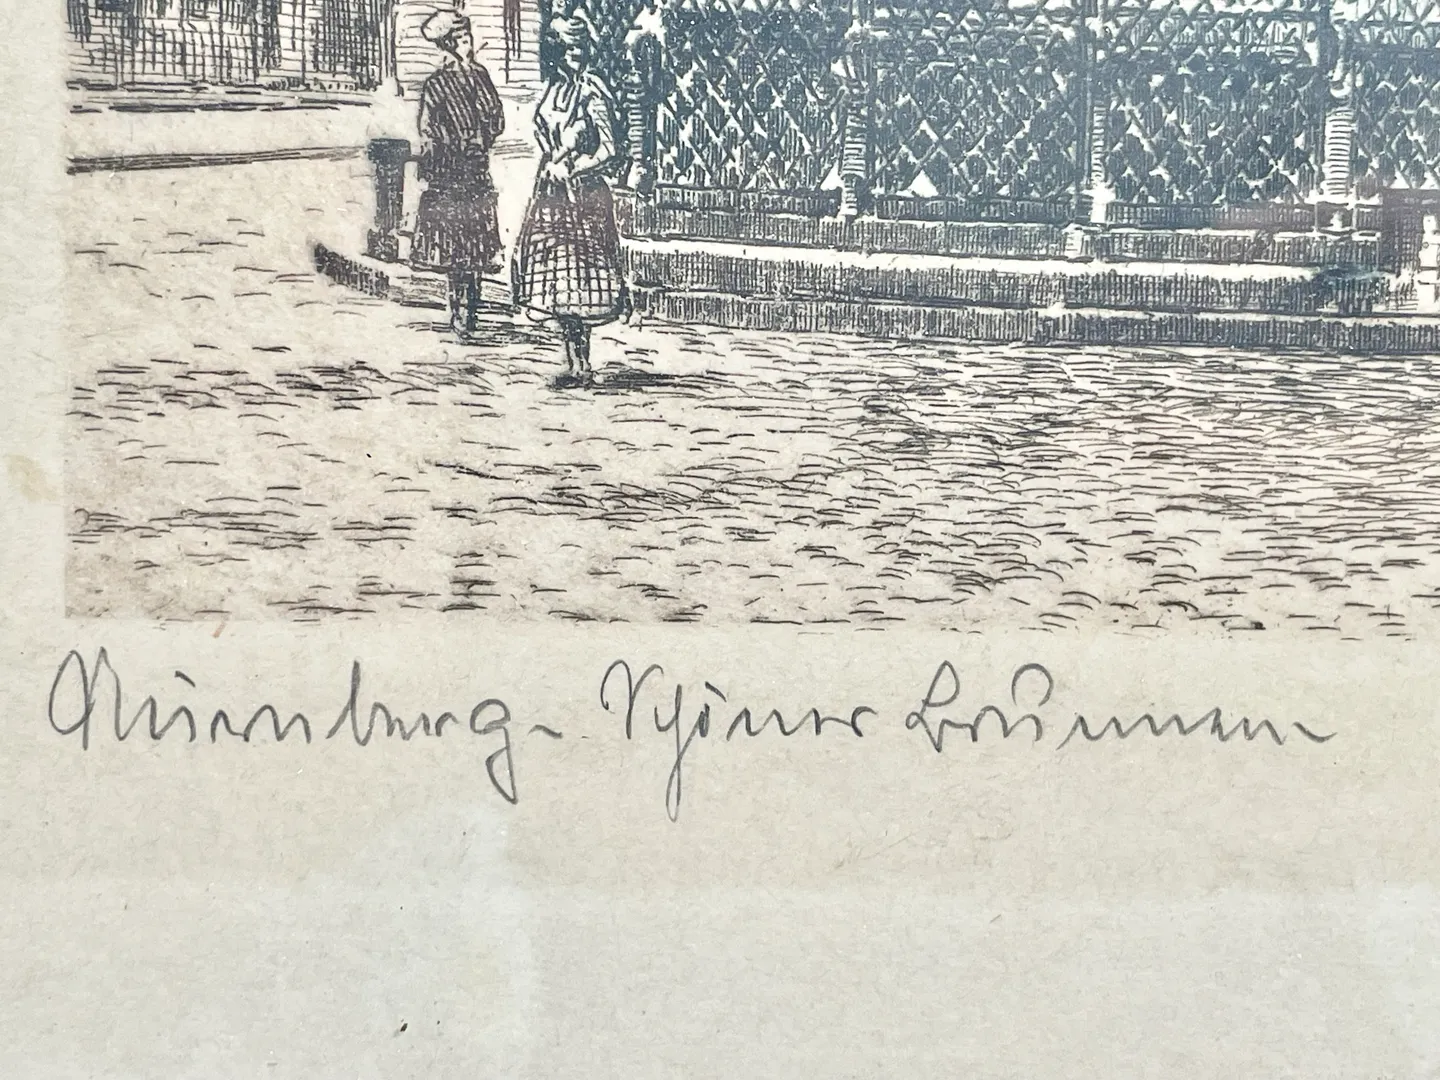 Nürnberg - Schöner Brunnen